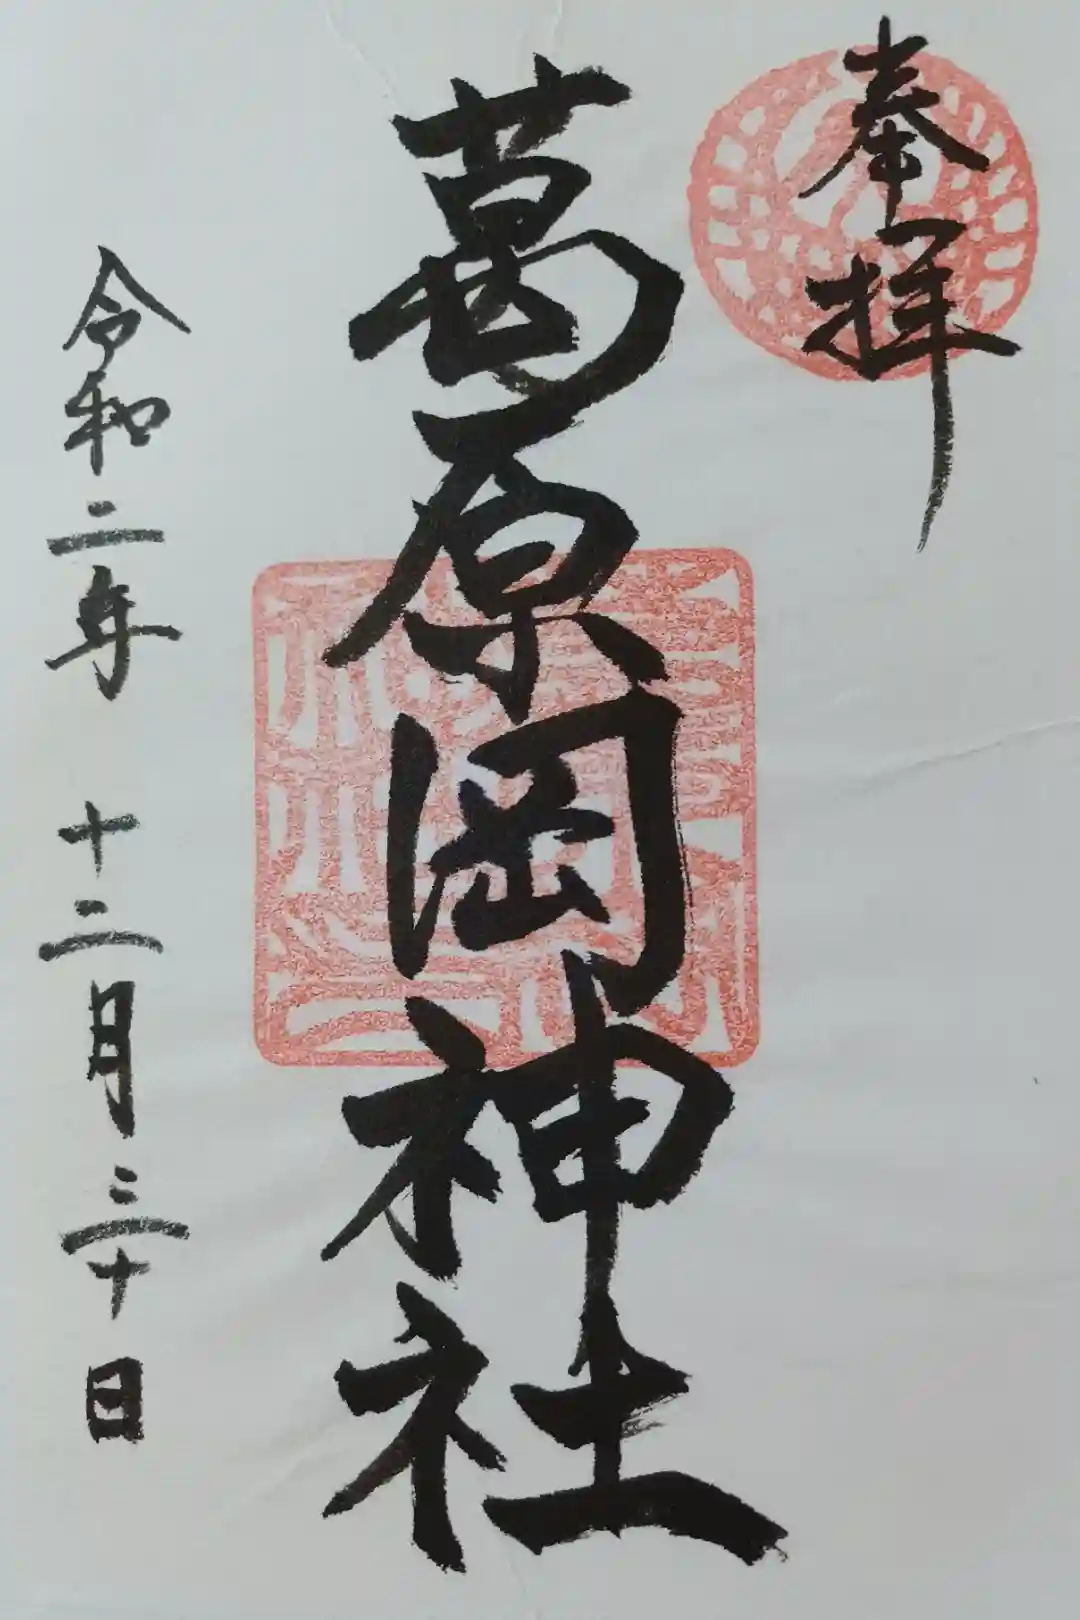 奉拝
葛原岡神社
令和二年 十二月三十日